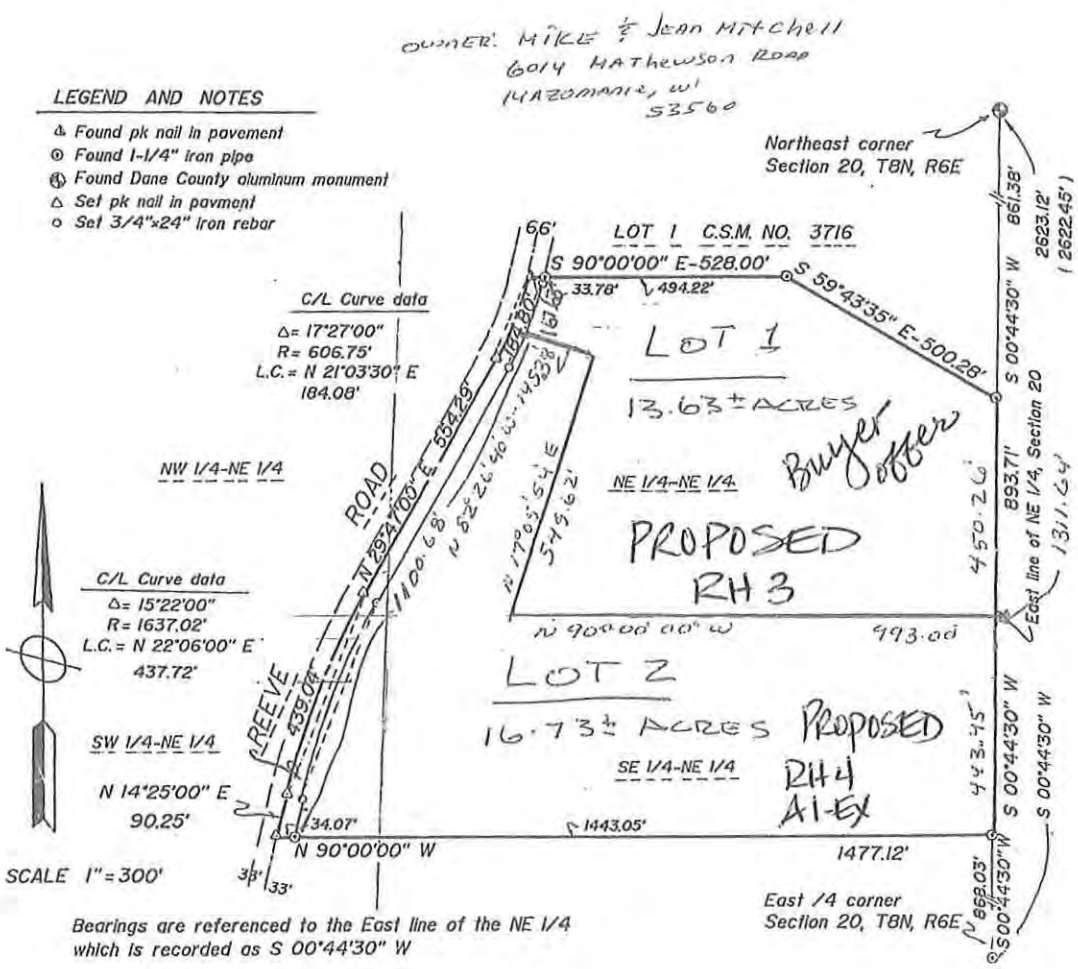 OWNER: MIKE & JEAN MITCHELL
6014 MATHEWSON ROAD
MAZOMANIE, WI
53560
LEGEND AND NOTES
Found pk nail in pavement
Found 1-1/4" iron pipe
Found Dane County aluminum monument
Set pk nail in pavment
Set 3/4"x24" iron rebar
Northeast corner
Section 20, T8N, R6E
861.38'
2623.12'
(2622.45')
S 00°44'30" W
66'
LOT 1 C.S.M. NO. 3716
S 90°00'00" E-528.00'
33.78'
494.22'
S 59°43'35" E-500.28'
C/L Curve data
Δ= 17°27'00"
R= 606.75'
L.C.= N 21°03'30" E
184.08'
184.80'
LOT 1
13.63± ACRES
Buyer
offer
NE 1/4-NE 1/4
PROPOSED
RH 3
NW 1/4-NE 1/4
ROAD
N 29°47'00" E 554.29'
1400.68'
N 82°26'40" W-145.38'
N 17°05'54" E
549.62'
450.26'
893.71'
East line of NE 1/4, Section 20
1311.64'
C/L Curve data
Δ= 15°22'00"
R= 1637.02'
L.C.= N 22°06'00" E
437.72'
N 90°00'00" W
993.00
LOT 2
16.73± ACRES
PROPOSED
RH4
A1-EX
SE 1/4-NE 1/4
443.45'
S 00°44'30" W
S 00°44'30" W
REEVE
439.04'
SW 1/4-NE 1/4
N 14°25'00" E
90.25'
34.07'
1443.05'
N 90°00'00" W
1477.12'
SCALE 1"=300'
33'
33'
East /4 corner
Section 20, T8N, R6E
868.03'
S00°44'30"W
Bearings are referenced to the East line of the NE 1/4
which is recorded as S 00°44'30" W